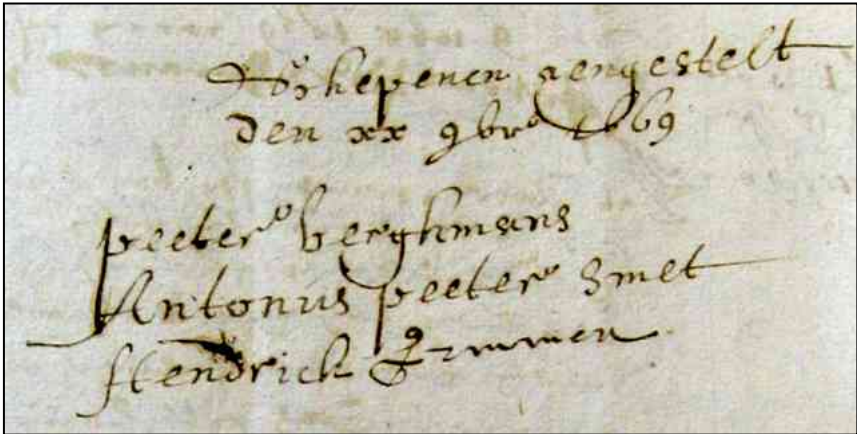 Schepenen aengestelt
den xx 9bris 1669
peeter berghmans
Antonus peeter Smet
Hendrick